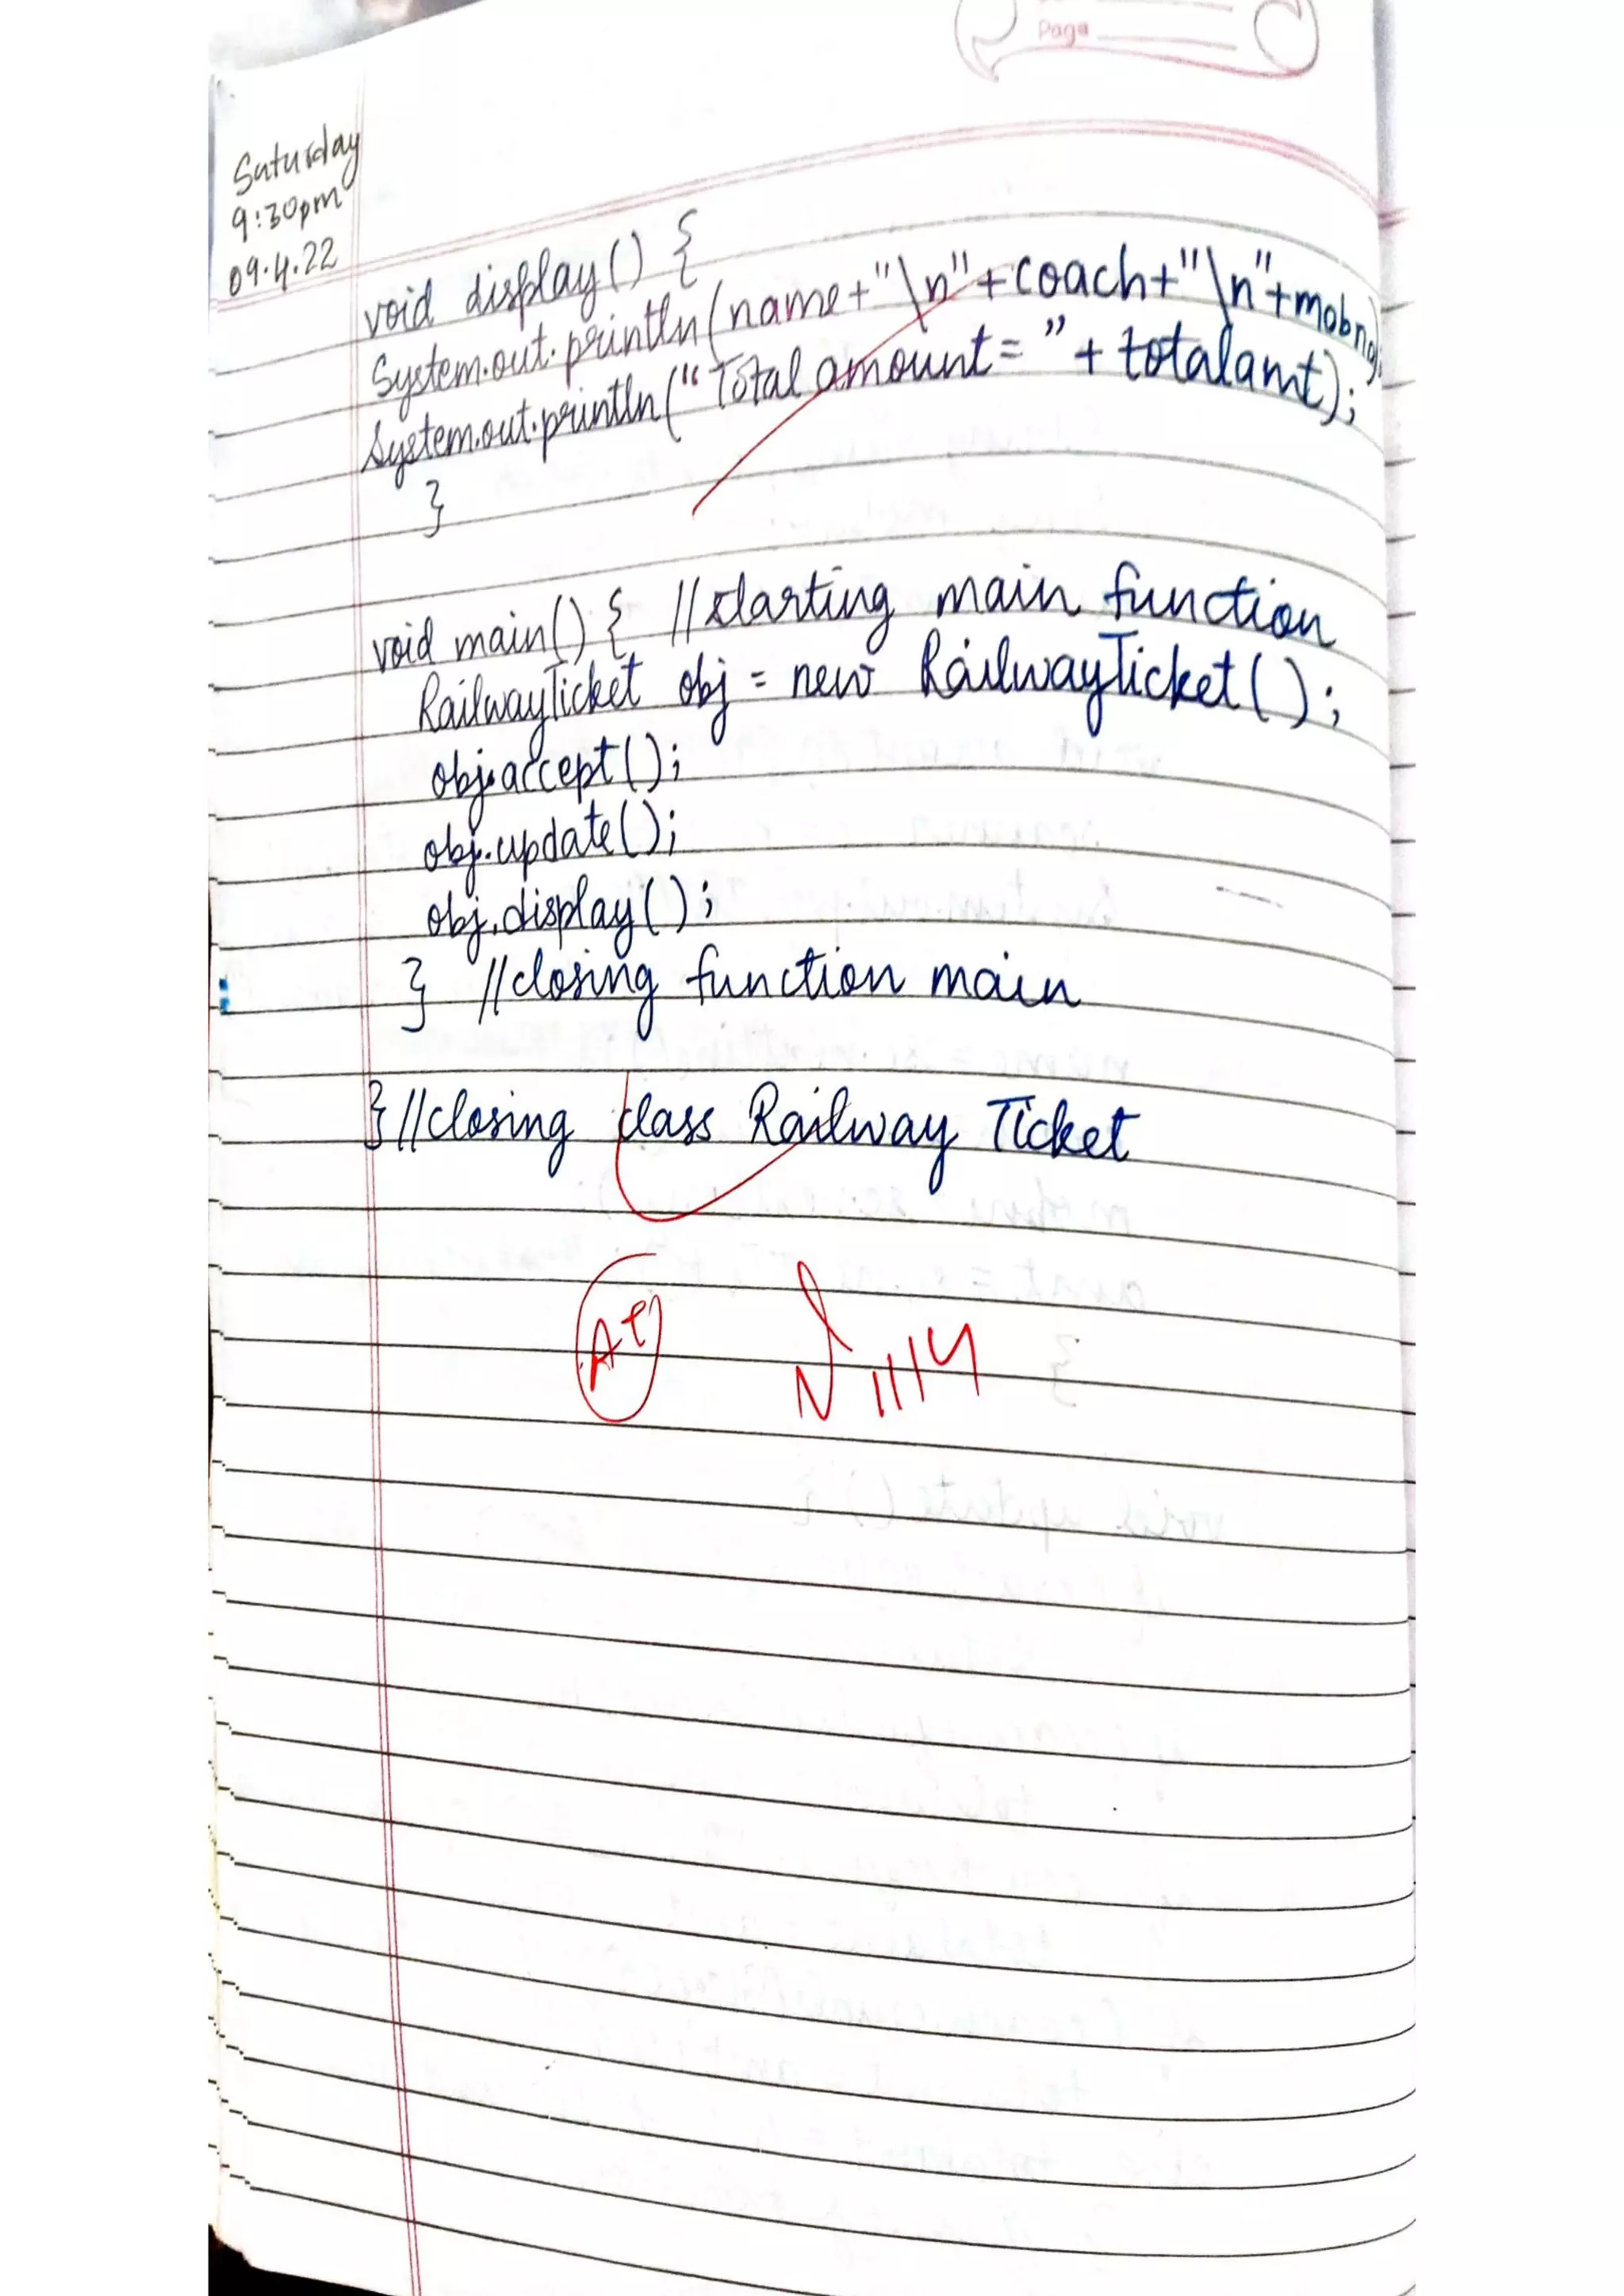 Page
Saturday
9:30pm
09.4.22
void display() {
System.out.println(name+"\n"+coach+"\n"+mobno);
System.out.println("Total amount= "+ totalamt);
}
void main() { //starting main function
RailwayTicket obj = new RailwayTicket();
obj.accept();
obj.update();
obj.display();
} //closing function main
}//closing class Railway Ticket
A+